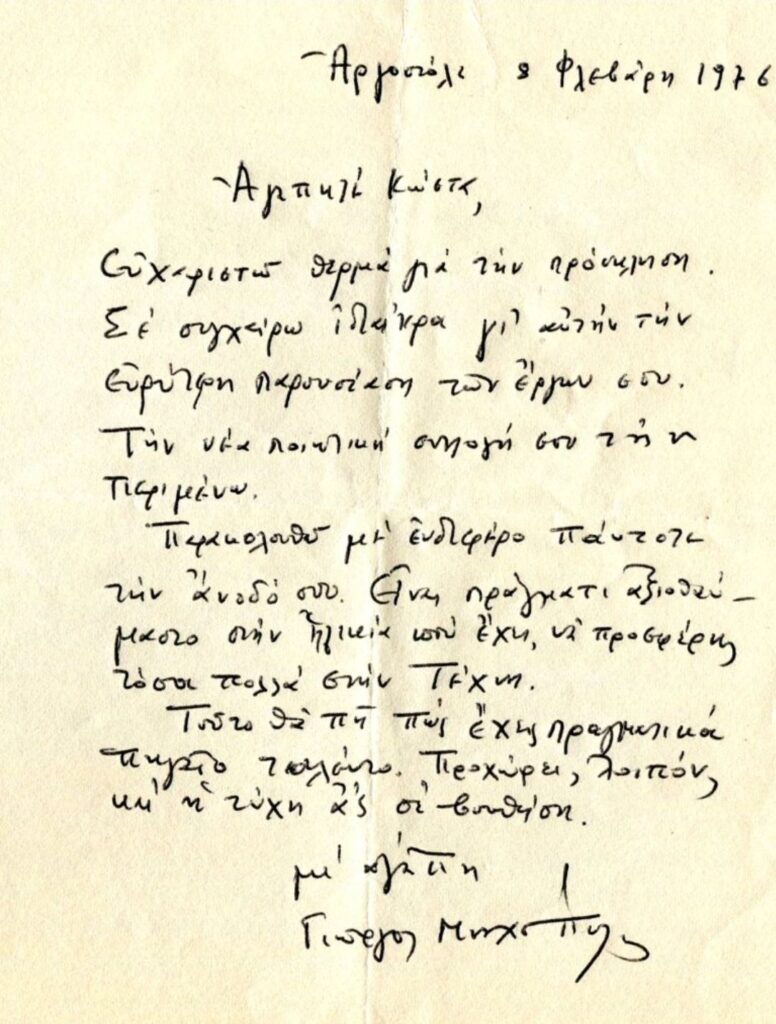 Ἀργοστόλι 8 Φλεβάρη 1976
Ἀγαπητέ Κώστα,
Εὐχαριστῶ θερμά γιά τήν πρόσκληση.
Σέ συγχαίρω ἰδιαίτερα γι' αὐτήν τήν
εὐρύτερη παρουσίαση τῶν ἔργων σου.
Τήν νέα ποιητική συλλογή σου τήν
περιμένω.
Παρακολουθῶ μέ ἐνδιαφέρο πάντοτε
τήν ἄνοδό σου. Εἶναι πράγματι ἀξιοθαύ-
μαστο στήν ἡλικία πού ἔχεις νά προσφέρεις
τόσα πολλά στήν Τέχνη.
Τοῦτο θά πῆ πώς ἔχεις πραγματικά
πηγαῖο ταλέντο. Προχώρει, λοιπόν,
κι' ἡ τύχη ἄς σέ βοηθήση.
μέ ἀγάπη
Γιῶργος